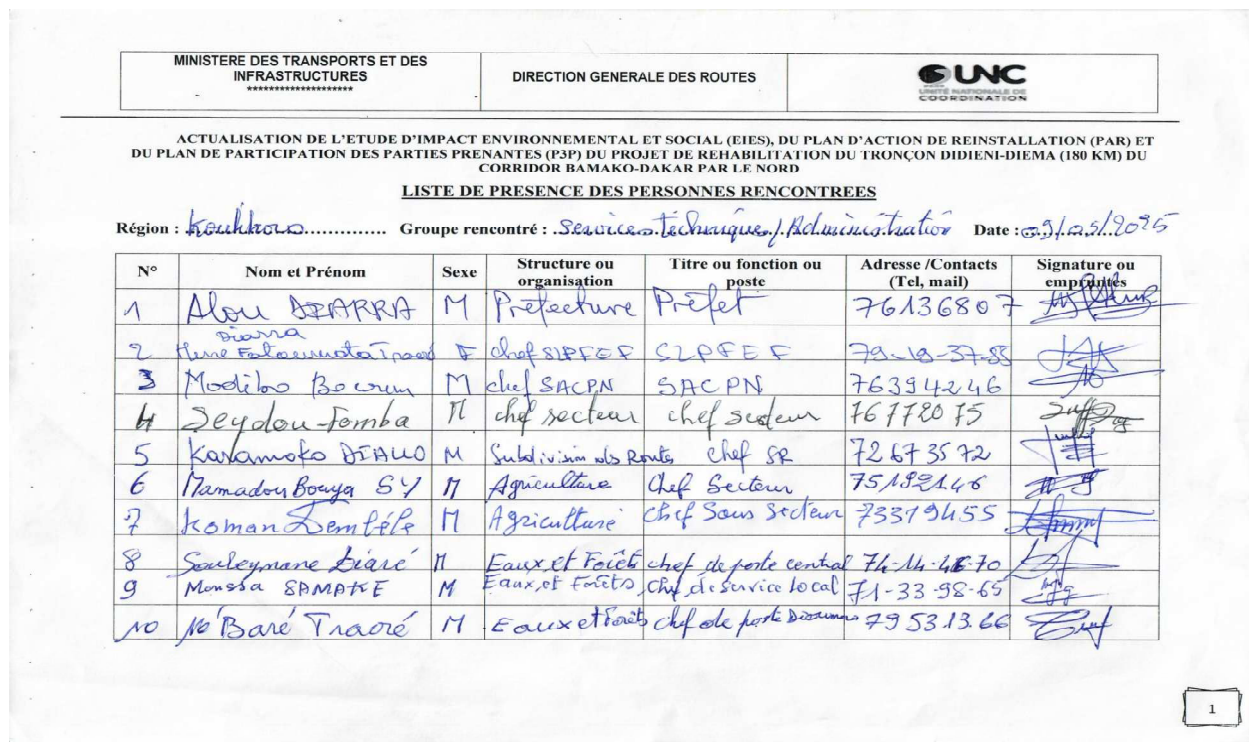 MINISTERE DES TRANSPORTS ET DES
INFRASTRUCTURES
********************
DIRECTION GENERALE DES ROUTES
UNC
UNITÉ NATIONALE DE
COORDINATION
ACTUALISATION DE L'ETUDE D'IMPACT ENVIRONNEMENTAL ET SOCIAL (EIES), DU PLAN D'ACTION DE REINSTALLATION (PAR) ET
DU PLAN DE PARTICIPATION DES PARTIES PRENANTES (P3P) DU PROJET DE REHABILITATION DU TRONÇON DIDIENI-DIEMA (180 KM) DU
CORRIDOR BAMAKO-DAKAR PAR LE NORD
LISTE DE PRESENCE DES PERSONNES RENCONTREES
Région : Koulikoro Groupe rencontré : Services techniques / Administration Date : 09/05/2025
N° Nom et Prénom Sexe Structure ou organisation Titre ou fonction ou poste Adresse /Contacts (Tel, mail) Signature ou empruntés
1 Alou DIARRA M Préfecture Préfet 76136807
2 Mme Diarra Fatoumata Traoré F chef SLPFEF SLPFEF
3 Modibo M chef SACPN SACPN 76394246
4 Seydou Fomba M chef secteur chef secteur 76772075
5 Karamoko DIALLO M Subdivision des Routes chef SR 72673572
6 Mamadou Bouya SY M Agriculture Chef Secteur 75192146
7 Koman Dembélé M Agriculture Chef Sous Secteur 73319455
8 Souleymane Diaré M Eaux et Forêts chef de poste central
9 Moussa SAMAKE M Eaux et Forêts Chef de service local 71-33-98-65
10 Baré Traoré M Eaux et Forêts chef de poste 79 53.13.66
1